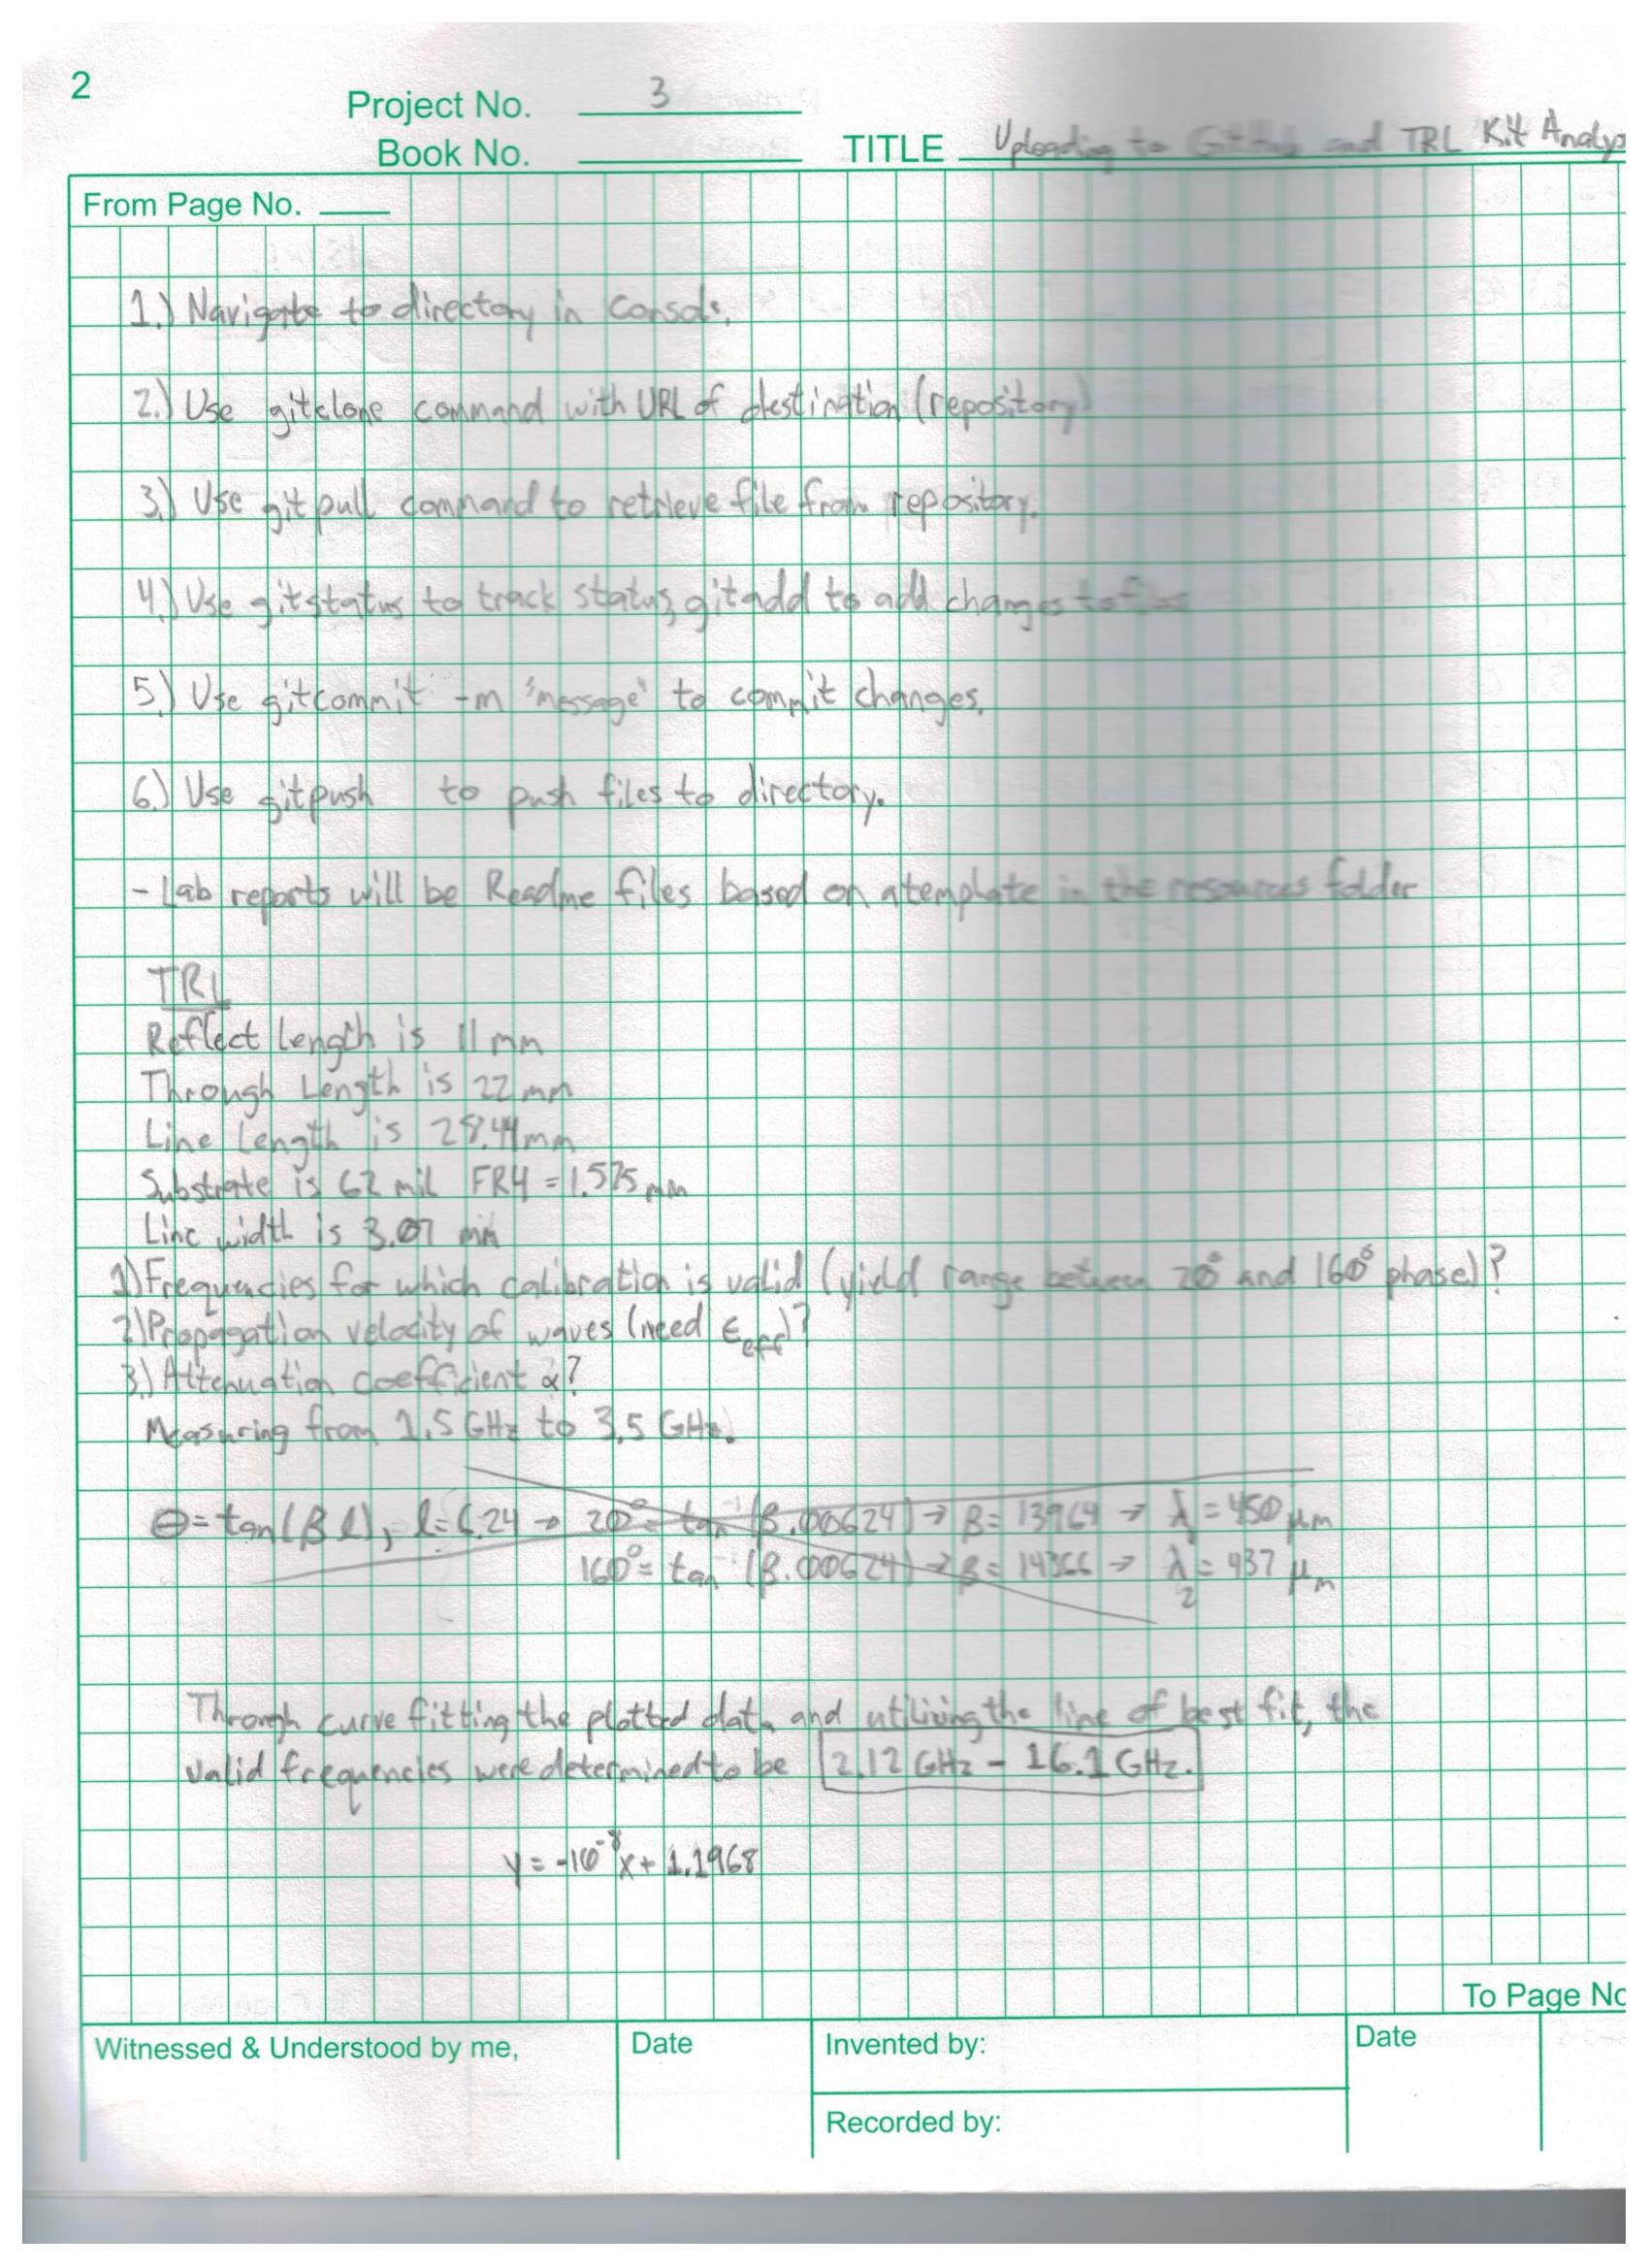 2
Project No. 3
Book No.
TITLE Uploading to GitHub and TRL Kit Analys
From Page No.
1.) Navigate to directory in console.
2.) Use gitclone command with URL of destination (repository)
3.) Use gitpull command to retrieve file from repository.
4.) Use gitstatus to track status, gitadd to add changes to files
5.) Use gitcommit -m "message" to commit changes.
6.) Use gitpush to push files to directory.
- Lab reports will be Readme files based on a template in the resources folder
TRL
Reflect Length is 11 mm
Through Length is 22 mm
Line Length is 28.44 mm
Substrate is 62 mil FR4 = 1.575 mm
Line width is 3.07 mm
1) Frequencies for which calibration is valid (yield range between 20° and 160° phase)?
2) Propagation velocity of waves (need ϵeff)?
3.) Attenuation coefficient α?
Measuring from 1.5 GHz to 3.5 GHz.
θ = tan(βl), l = 6.24 → 20° = tan⁻¹(β.00624) → β = 13964 → λ₁ = 450 μm
160° = tan⁻¹(β.00624) → β = 14366 → λ₂ = 437 μm
Through curve fitting the plotted data and utilizing the line of best fit, the
valid frequencies were determined to be 2.12 GHz - 16.1 GHz.
y = -10⁻⁸x + 1.1968
To Page No
Witnessed & Understood by me,
Date
Invented by:
Date
Recorded by: